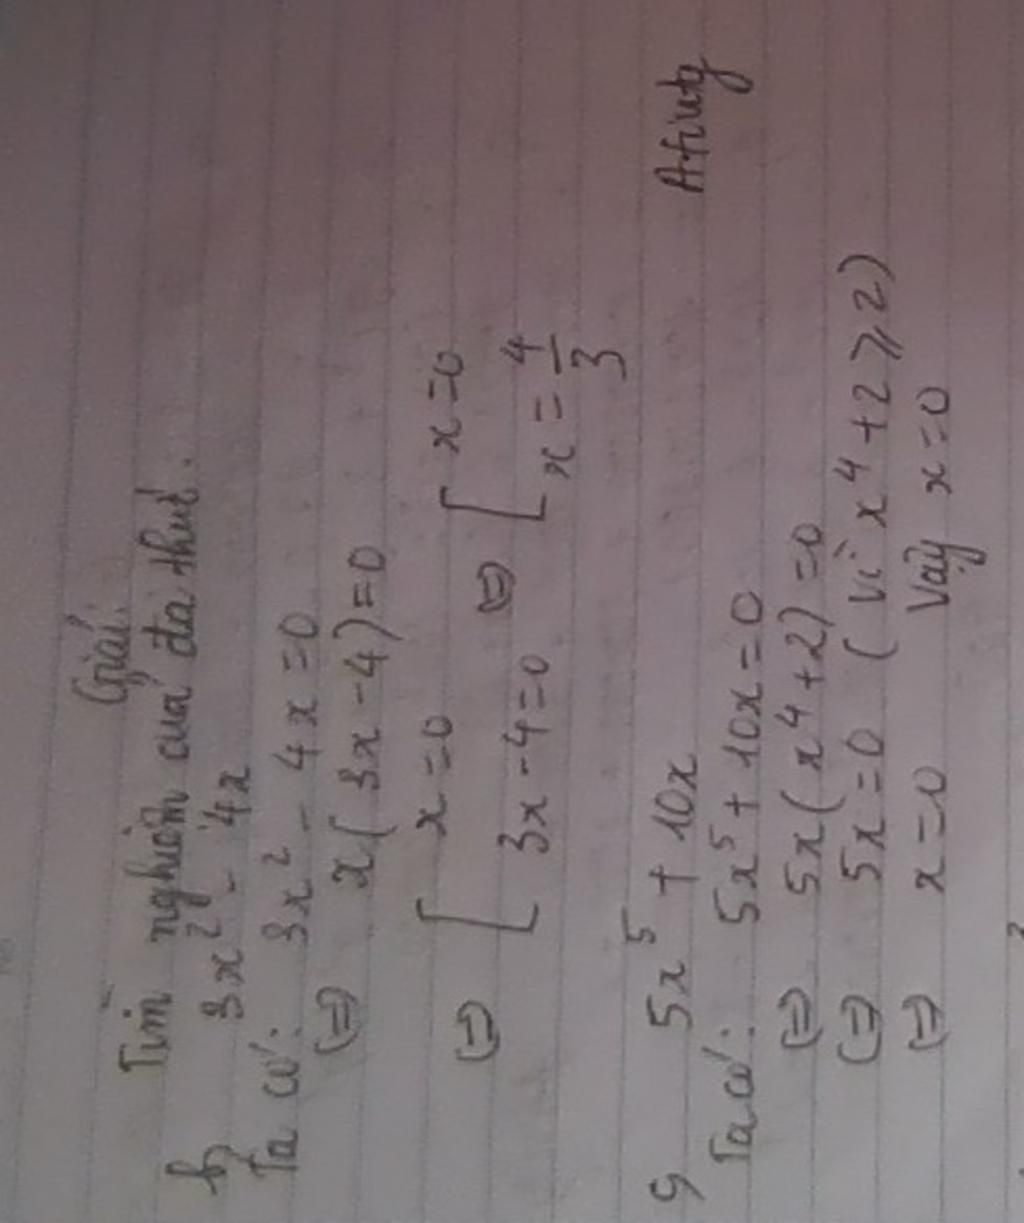 Giải.
Tìm nghiệm của đa thức.
b, 3x² - 4x
Ta có: 3x² - 4x = 0
(=) x(3x - 4) = 0
(=) [ x = 0 (=) [ x = 0
3x - 4 = 0 x = 4/3
c, 5x⁵ + 10x
Ta có: 5x⁵ + 10x = 0
(=) 5x(x⁴ + 2) = 0
(=) 5x = 0 (vì x⁴ + 2 ⩾ 2)
(=) x = 0 Vậy x = 0